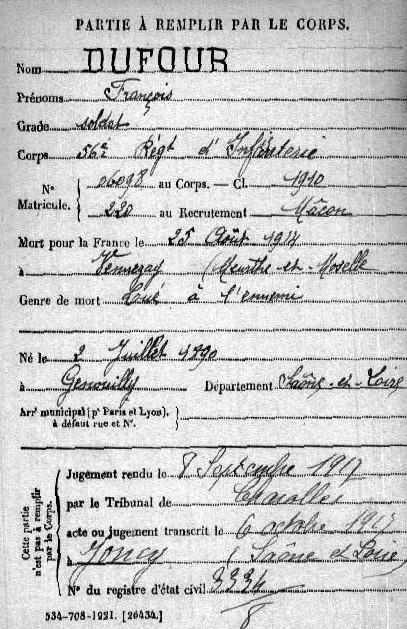 PARTIE À REMPLIR PAR LE CORPS.
Nom DUFOUR
Prénoms François
Grade soldat
Corps 56e Régt d'Infanterie
N° Matricule. 06098 au Corps. — Cl. 1910
220 au Recrutement Mâcon
Mort pour la France le 25 Août 1914
à Vennezay (Meurthe-et-Moselle
Genre de mort Tué à l'ennemi
Né le 2 Juillet 1890
à Genouilly Département Saône-et-Loire
Arrt municipal (pr Paris et Lyon), à défaut rue et N°.
Cette partie n'est pas à remplir par le Corps.
Jugement rendu le 8 Septembre 1917
par le Tribunal de Charolles
acte ou jugement transcrit le 6 octobre 1917
à Joncy (Saône et Loire)
N° du registre d'état civil
534-708-1921. [26434.]